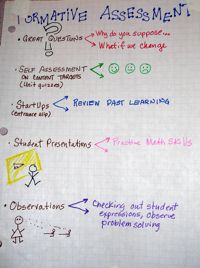 FORMATIVE ASSESSMENT
• GREAT QUESTIONS
Why do you suppose...
What if we change
?
• SELF ASSESSMENT
ON CONTENT TARGETS
(Unit quizzes)
• StartUps
(entrance slip)
REVIEW PAST LEARNING
• Student Presentations
Practice Math Skills
• Observations
Checking out student
expressions, observe
problem solving